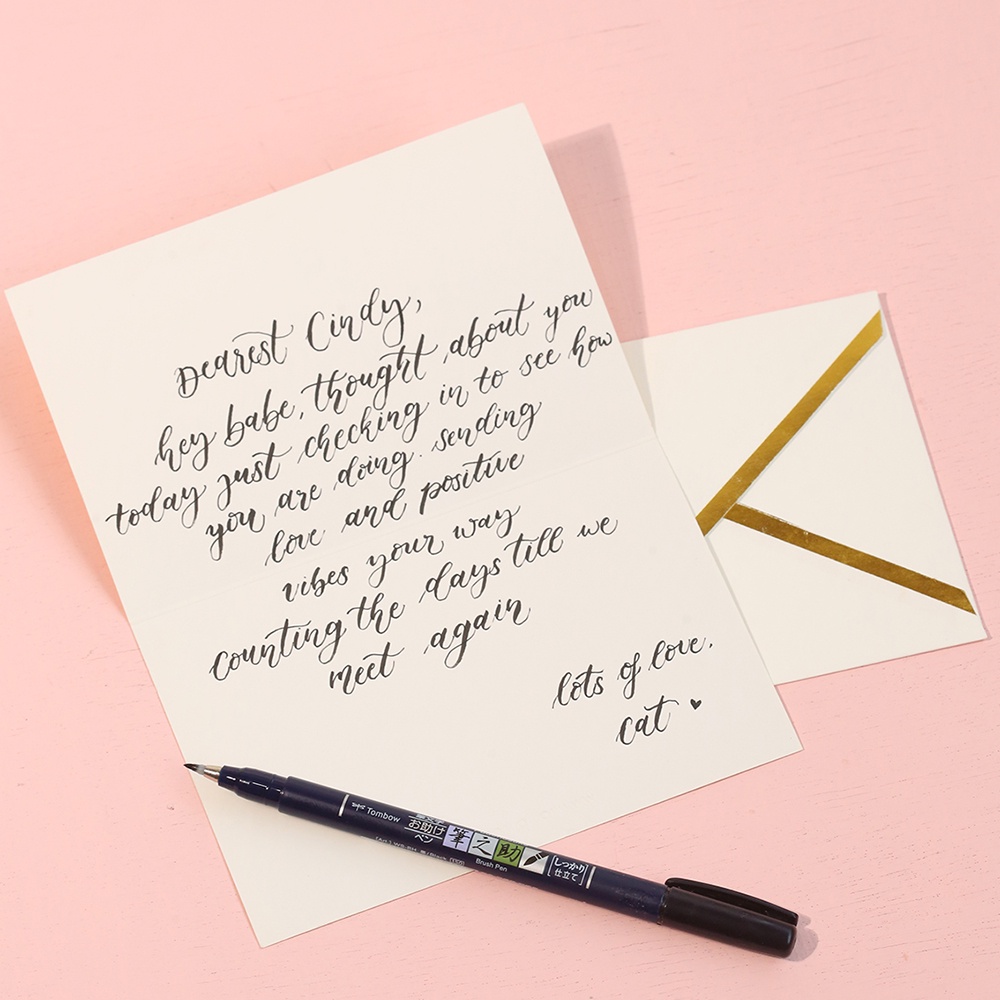 Dearest Cindy,
hey babe, thought about you
today just checking in to see how
you are doing. sending
love and positive
vibes your way
counting the days till we
meet again
lots of love,
cat ♥
Tombow
お助け
ペン
筆之助
Brush Pen
しっかり
仕立て